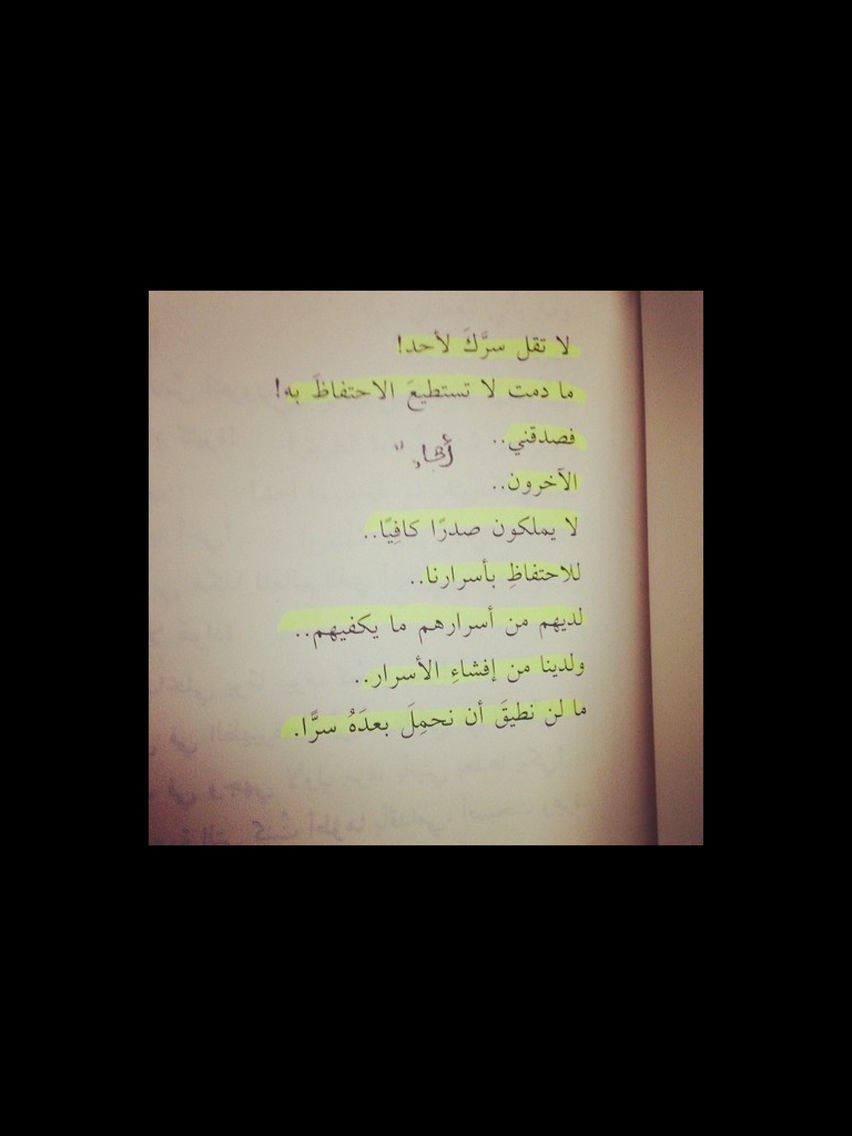 لا تقل سرَّكَ لأحد!
ما دمت لا تستطيعَ الاحتفاظَ به!
فصدقني..
الآخرون..
لا يملكون صدرًا كافِيًا..
للاحتفاظِ بأسرارنا..
لديهم من أسرارهم ما يكفيهم..
ولدينا من إفشاءِ الأسرار..
ما لن نطيقَ أن نحمِلَ بعدَهُ سرًّا.